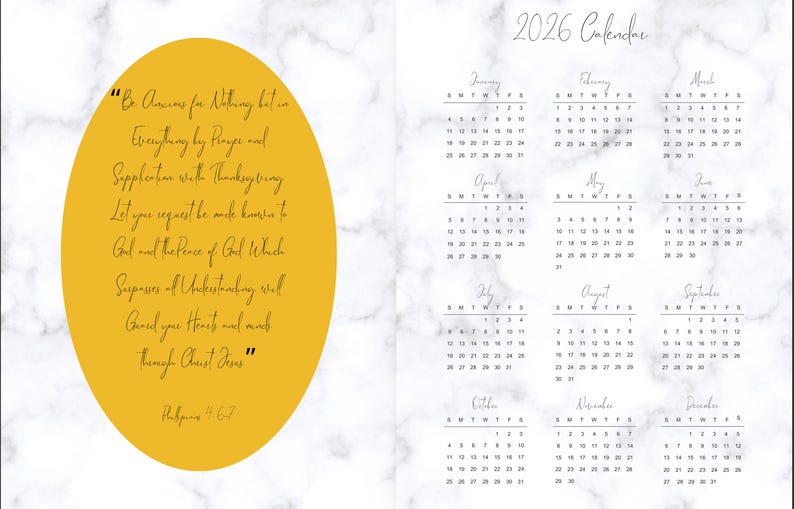 “Be Anxious for Nothing but in
Everything by Prayer and
Supplication, with Thanksgiving
Let your request be made known to
God, and thePeace of God, Which
Surpasses all Understanding will
Guard your Hearts and minds
through Christ Jesus”
Phillipians 4:6-7
2026 Calendar
January
S M T W T F S
1 2 3
4 5 6 7 8 9 10
11 12 13 14 15 16 17
18 19 20 21 22 23 24
25 26 27 28 29 30 31
February
S M T W T F S
1 2 3 4 5 6 7
8 9 10 11 12 13 14
15 16 17 18 19 20 21
22 23 24 25 26 27 28
March
S M T W T F S
1 2 3 4 5 6 7
8 9 10 11 12 13 14
15 16 17 18 19 20 21
22 23 24 25 26 27 28
29 30 31
April
S M T W T F S
1 2 3 4
5 6 7 8 9 10 11
12 13 14 15 16 17 18
19 20 21 22 23 24 25
26 27 28 29 30
May
S M T W T F S
1 2
3 4 5 6 7 8 9
10 11 12 13 14 15 16
17 18 19 20 21 22 23
24 25 26 27 28 29 30
31
June
S M T W T F S
1 2 3 4 5 6
7 8 9 10 11 12 13
14 15 16 17 18 19 20
21 22 23 24 25 26 27
28 29 30
July
S M T W T F S
1 2 3 4
5 6 7 8 9 10 11
12 13 14 15 16 17 18
19 20 21 22 23 24 25
26 27 28 29 30 31
August
S M T W T F S
1
2 3 4 5 6 7 8
9 10 11 12 13 14 15
16 17 18 19 20 21 22
23 24 25 26 27 28 29
30 31
September
S M T W T F S
1 2 3 4 5
6 7 8 9 10 11 12
13 14 15 16 17 18 19
20 21 22 23 24 25 26
27 28 29 30
October
S M T W T F S
1 2 3
4 5 6 7 8 9 10
11 12 13 14 15 16 17
18 19 20 21 22 23 24
25 26 27 28 29 30 31
November
S M T W T F S
1 2 3 4 5 6 7
8 9 10 11 12 13 14
15 16 17 18 19 20 21
22 23 24 25 26 27 28
29 30
December
S M T W T F S
1 2 3 4 5
6 7 8 9 10 11 12
13 14 15 16 17 18 19
20 21 22 23 24 25 26
27 28 29 30 31